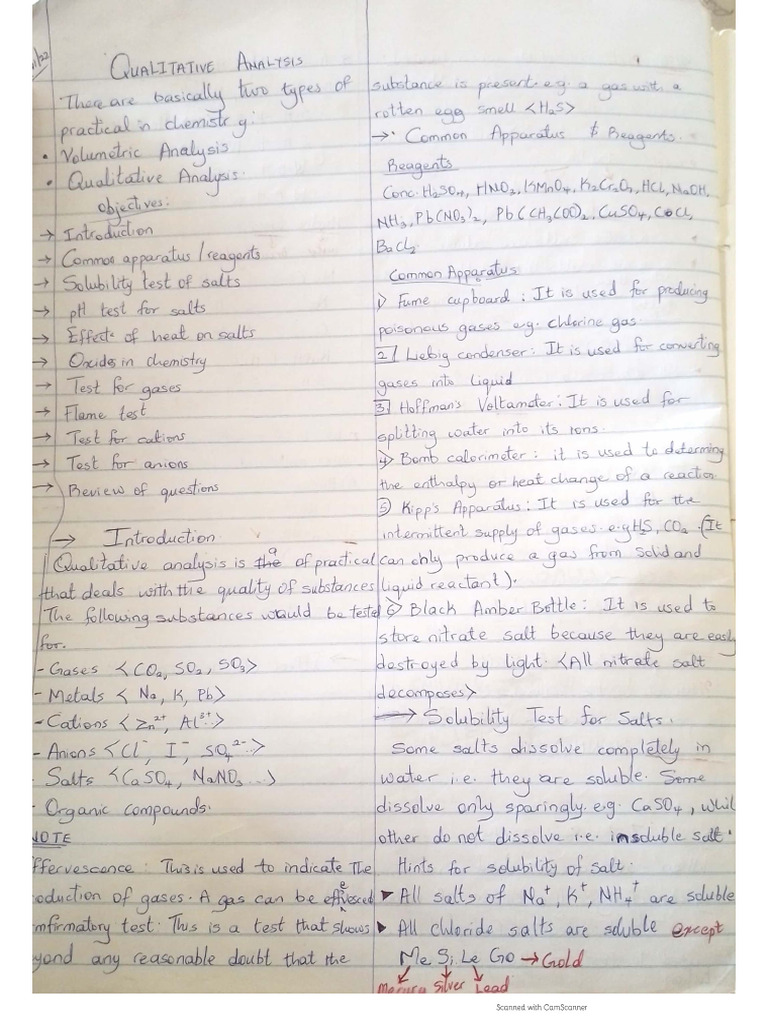 11/22
QUALITATIVE ANALYSIS
There are basically two types of
practical in chemistry:
• Volumetric Analysis
• Qualitative Analysis.
Objectives:
→ Introduction
→ Common apparatus / reagents
→ Solubility test of salts
→ pH test for salts
→ Effects of heat on salts
→ Oxides in chemistry
→ Test for gases
→ Flame test
→ Test for cations
→ Test for anions
→ Review of questions
→ Introduction.
Qualitative analysis is a of practical
that deals with the quality of substances
The following substances would be tested
for.
- Gases <CO2, SO2, SO3>
- Metals < Na, K, Pb>
- Cations <Zn²⁺, Al³⁺..>
- Anions <Cl⁻, I⁻, SO4²⁻..>
- Salts <CaSO4, NaNO3 ...>
- Organic compounds.
NOTE
ffervescence: This is used to indicate the
oduction of gases. A gas can be effervesced
nfirmatory test. This is a test that shows
yond any reasonable doubt that the
substance is present. e.g. a gas with a
rotten egg smell <H2S>
→• Common Apparatus & Reagents.
Reagents
Conc. H2SO4, HNO3, KMnO4, K2Cr2O7, HCl, NaOH,
NH3, Pb(NO3)2, Pb(CH3COO)2, CuSO4, CoCl,
BaCl2
Common Apparatus
1> Fume cupboard: It is used for producing
poisonous gases e.g. chlorine gas.
2/ Liebig condenser: It is used for converting
gases into liquid
3 Hoffman's Voltameter: It is used for
splitting water into its ions.
4> Bomb calorimeter: it is used to determing
the enthalpy or heat change of a reaction
5 Kipp's Apparatus: It is used for the
intermittent supply of gases. e.g H2S, CO2. (It
can only produce a gas from solid and
liquid reactant).
6> Black Amber Bottle: It is used to
store nitrate salt because they are easily
destroyed by light. <All nitrate salt
decomposes>
→ Solubility Test for Salts.
Some salts dissolve completely in
water i.e. they are soluble. Some
dissolve only sparingly. e.g. CaSO4, whil
other do not dissolve i.e. insoluble salt.
Hints for solubility of salt.
▶ All salts of Na⁺, K⁺, NH4⁺ are soluble
▶ All chloride salts are soluble except
Me Si Le Go → Gold
Silver Lead
Scanned with CamScanner